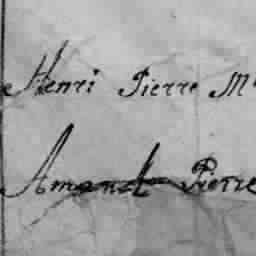 Henri Pierre M
Amand Pierre